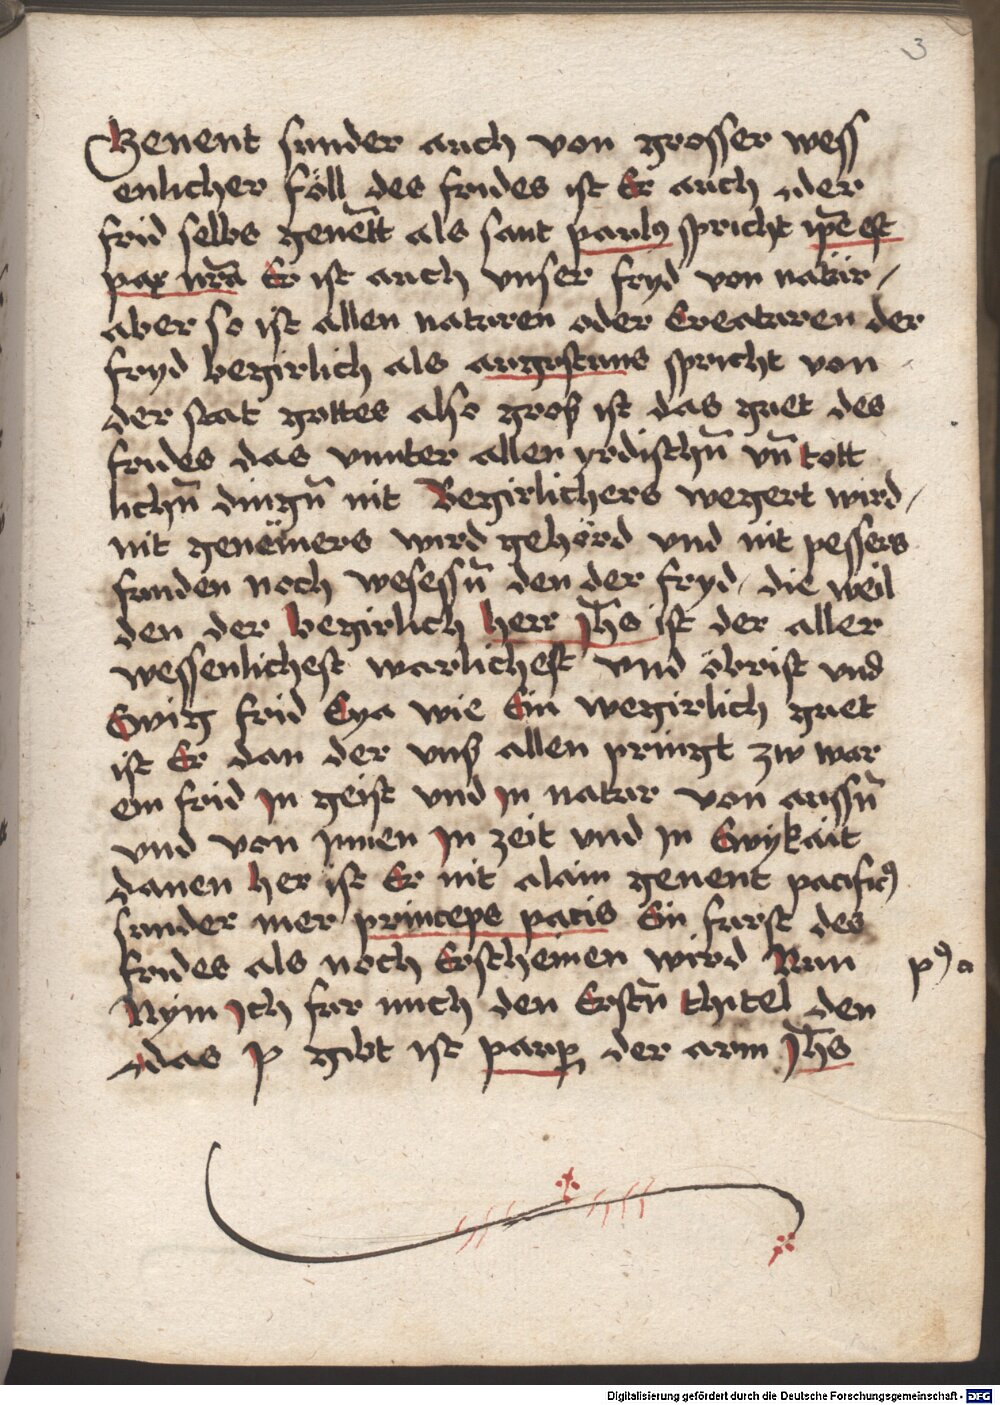 3
Genent sunder auch von grosser wess
enlicher föll des frides ist Er auch oder
frid selbs genētt als sant paulus spricht ipē est
pax nrā Er ist auch vnser fryd von natür /
aber so ist allen naturen oder Creaturen der
fryd begirlich als augustinus spricht von
der stat gottes also groß ist das guet des
frides das vnnter allen yrdischn̄ vn̄ tott
lichn̄ dingn̄ nit Begirlichers wegert wird /
nit genëmers wird gehörd vnd nit pessers
funden noch wesessn̄ den der fryd / die weil
den der begirlich herr Jhs ist der aller
wessenlichest warlichest vnd öbrist vnd
Ewig frid Eya wie Ein wegirlich guet
ist Er dan der vnß allen pringt zw war
ein frid Jn geist vnd Jn natur von aussn̄
vnd von Jnnen Jn zeit vnd Jn Ewykait
danen her ist Er nit alain genent pacificus
sunder mer princeps pacis Ein furst des
frides als noch Erscheinen wird Nun
Nym Jch fur mich den Erstn̄ thitel den
das P gibt ist paup der arm Jhs
Digitalisierung gefördert durch die Deutsche Forschungsgemeinschaft - DFG